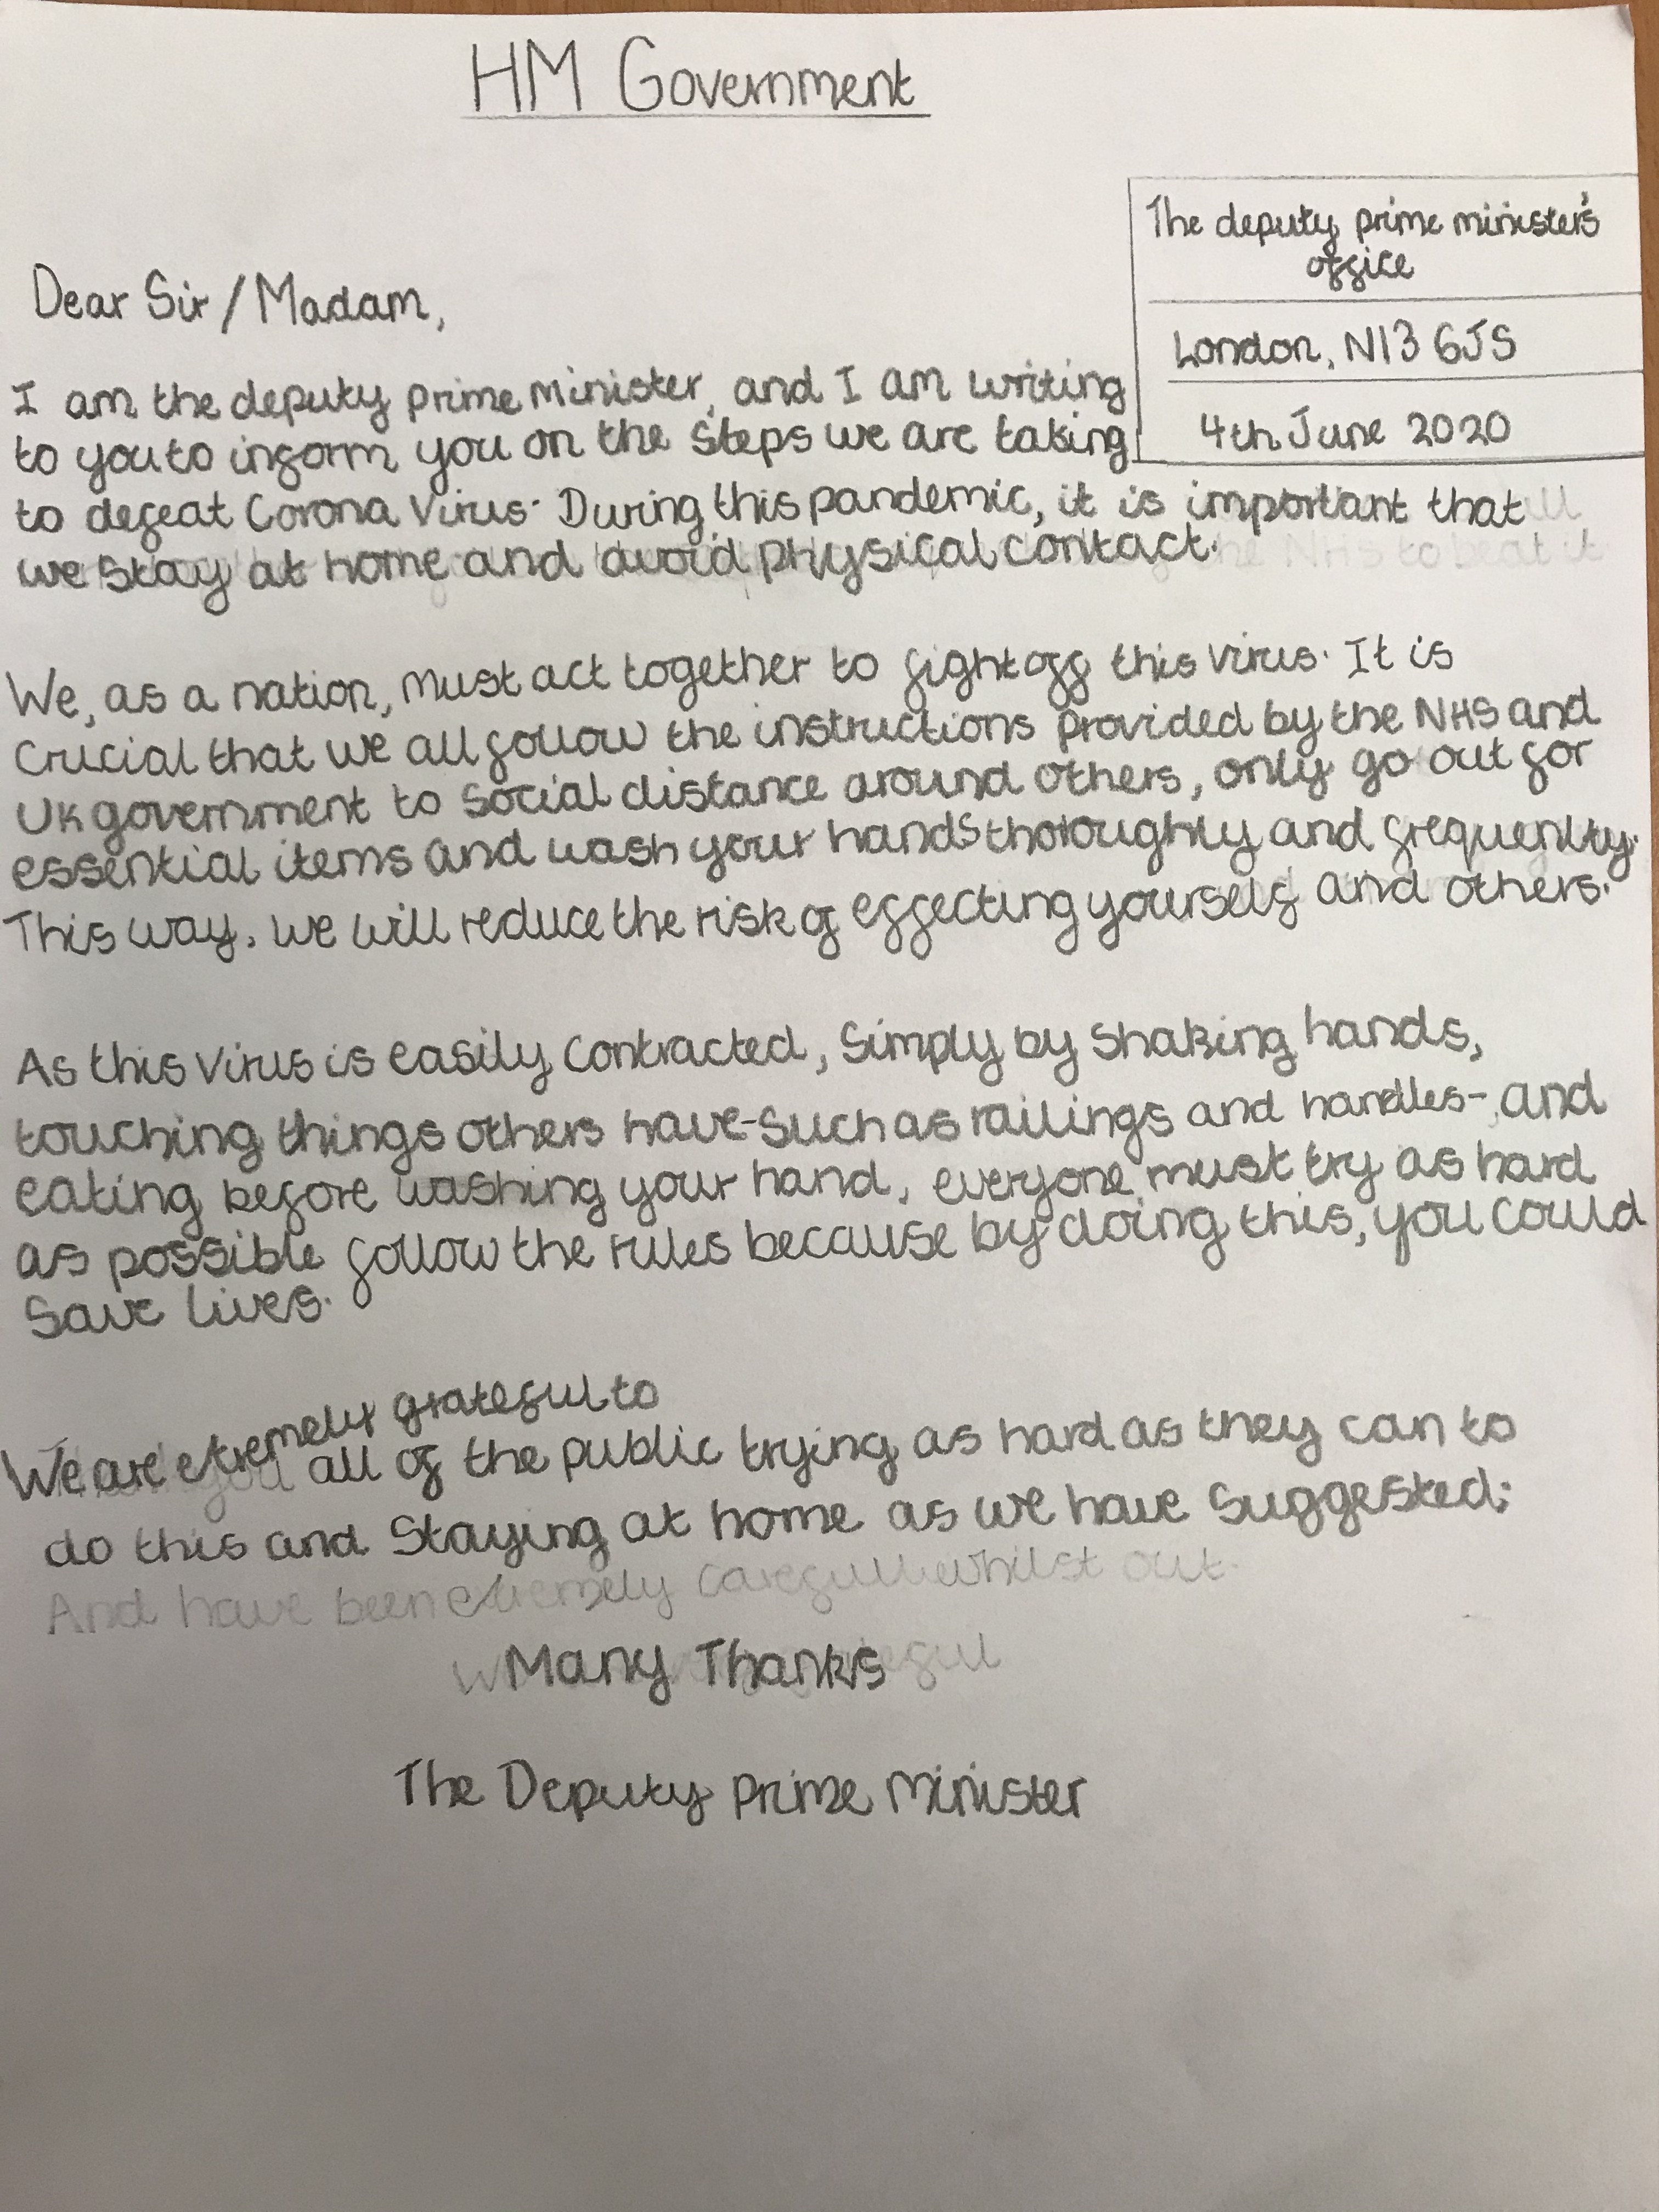 HM Government
The deputy prime minister's
office
London, N13 6JS
4th June 2020
Dear Sir/Madam,
I am the deputy prime minister, and I am writing
to you to inform you on the steps we are taking
to defeat Corona Virus. During this pandemic, it is important that
we stay at home and avoid physical contact.
We, as a nation, must act together to fight off this virus. It is
crucial that we all follow the instructions provided by the NHS and
UK government to social distance around others, only go out for
essential items and wash your hands thoroughly and frequently.
This way, we will reduce the risk of effecting yourself and others.
As this virus is easily contracted, simply by shaking hands,
touching things others have-such as railings and handles-, and
eating before washing your hand, everyone must try as hard
as possible follow the rules because by doing this, you could
save lives.
We are etremely grateful to
all of the public trying as hard as they can to
do this and staying at home as we have suggested;
And have been extremely carefull whilst out.
Many Thanks
The Deputy Prime Minister